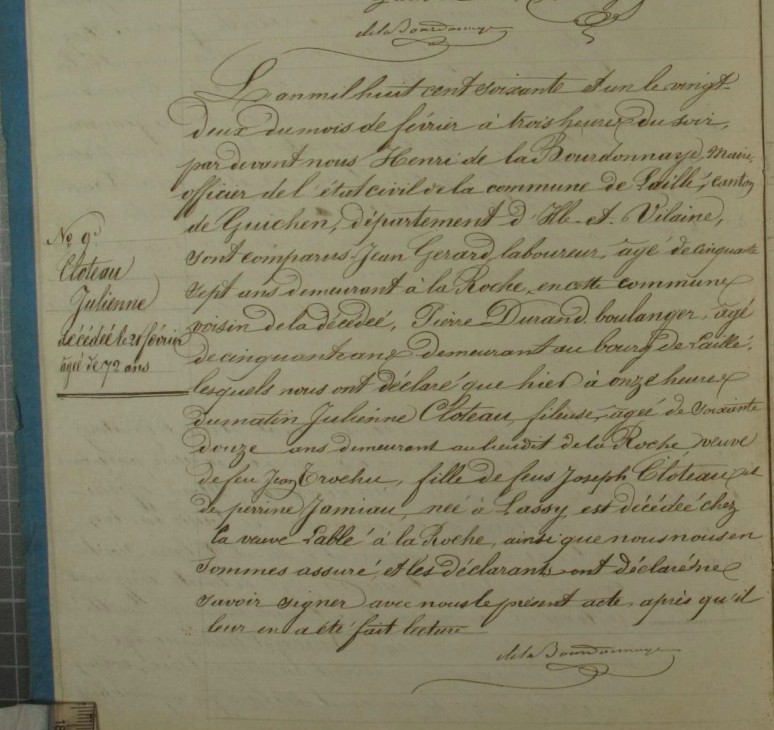 de la Bourdonnaye
L'an mil huit cent soixante et un le vingt
deux du mois de février à trois heures du soir,
par devant nous Henri de la Bourdonnaye, Maire,
officier de l'état civil de la commune de Laillé, canton
de Guichen, département d'Ille-et-Vilaine,
sont comparus Jean Gerard, laboureur, âgé de cinquante
sept ans demeurant à la Roche, en cette commune
voisin de la décédeé, Pierre Durand, boulanger, âgé
de cinquante ans demeurant au bourg de Laillé.
lesquels nous ont déclaré que hier à onze heures
du matin Julienne Cloteau, fileuse, ageé de soixante
douze ans demeurant au lieu dit de la Roche veuve
de feu Jean Trochu, fille de feus Joseph Cloteau et
de perrine Jamiau, neé à Lassy est décédeé chez
la veuve Lablé à la Roche, ainsi que nous nous en
sommes assuré, et les déclarants ont déclaré ne
savoir signer avec nous le présent acte, après qu'il
leur en a été fait lecture
de la Bourdonnaye
No 9.
Cloteau
Julienne
décédeé le 21 février
ageé de 72 ans